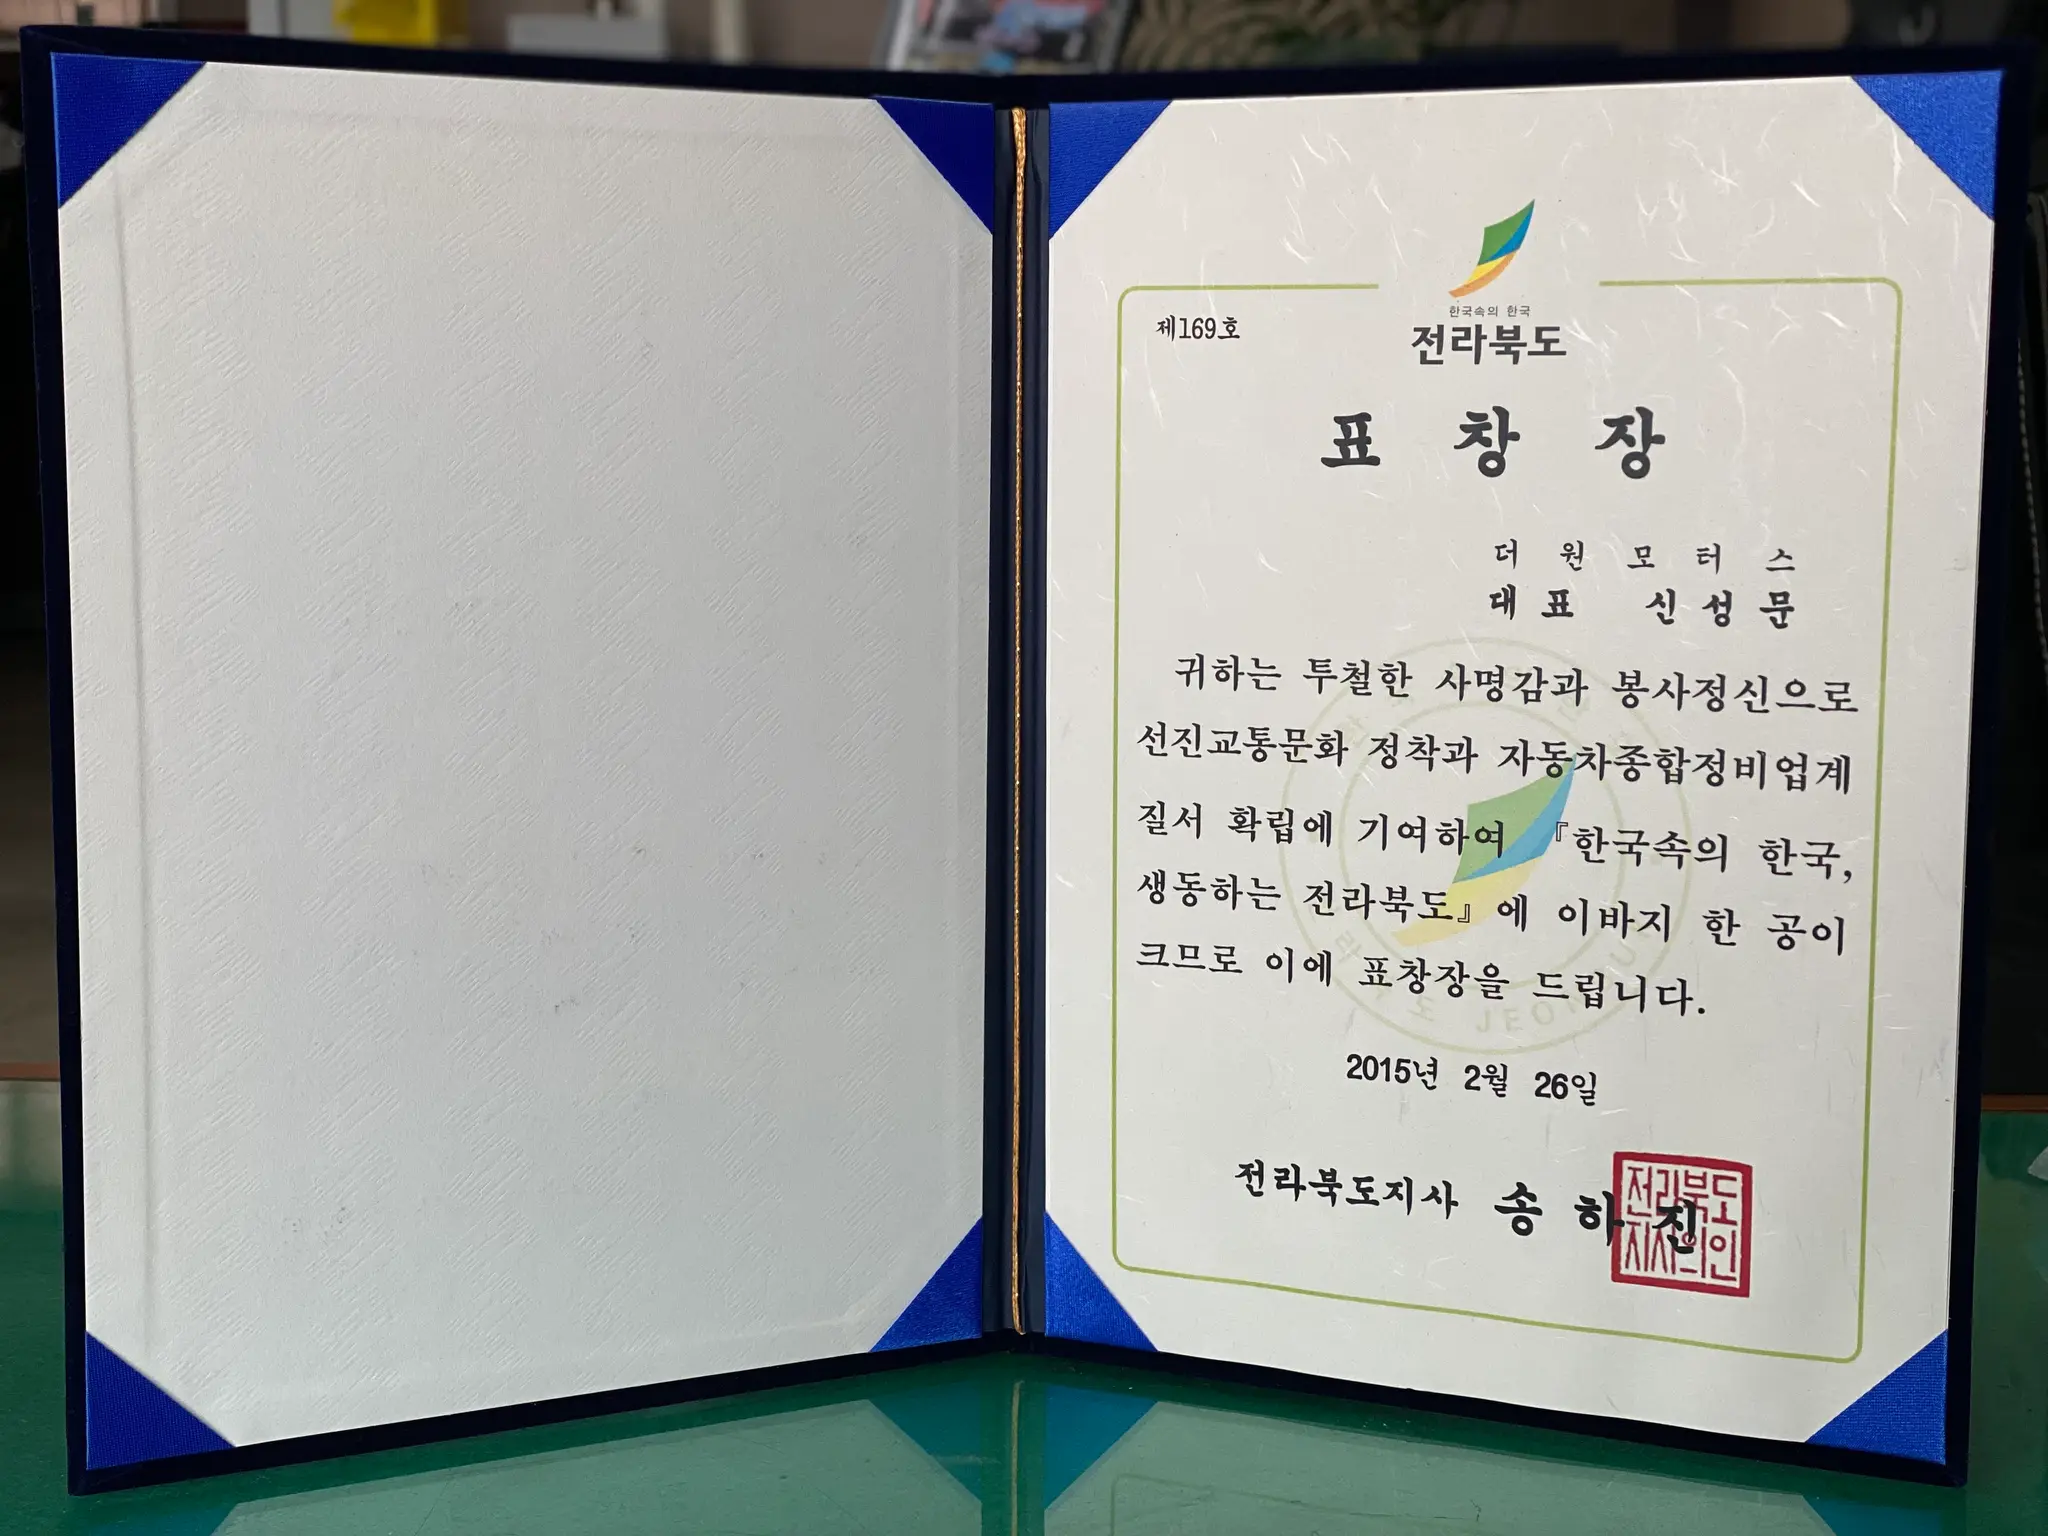 한국속의 한국
전라북도
제169호
표 창 장
더 원 모 터 스
대 표 신 성 문
귀하는 투철한 사명감과 봉사정신으로
선진교통문화 정착과 자동차종합정비업계
질서 확립에 기여하여 『한국속의 한국,
생동하는 전라북도』에 이바지 한 공이
크므로 이에 표창장을 드립니다.
2015년 2월 26일
전라북도지사 송 하 진
전라북도
지사의인